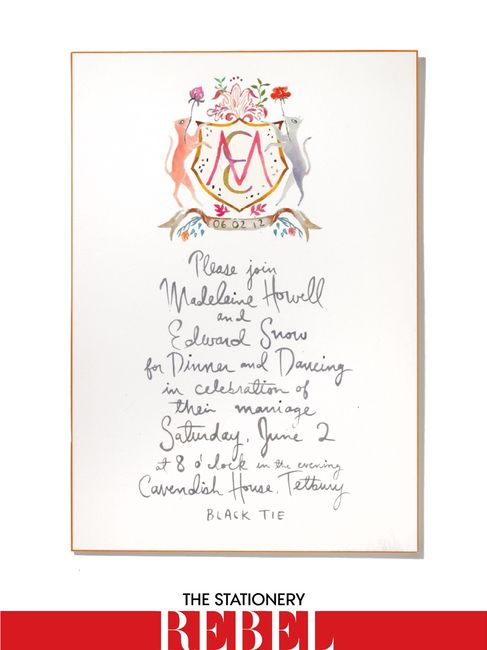 CME
06 02 12
Please join
Madeleine Howell
and
Edward Snow
for Dinner and Dancing
in celebration of
their marriage
Saturday, June 2
at 8 o'clock in the evening
Cavendish House, Tetbury
BLACK TIE
THE STATIONERY
REBEL